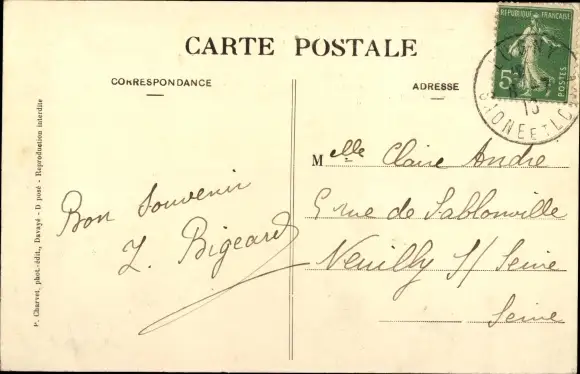 CARTE POSTALE
CORRESPONDANCE
ADRESSE
REPUBLIQUE FRANÇAISE
5c
POSTES
SAONE ET LOIRE
Melle Claire André
5 rue de Sablonville
Neuilly S/ Seine
Seine
Bon Souvenir
L. Bigeard
P. Charvet, phot.-édit., Davayé - D posé - Reproduction interdite